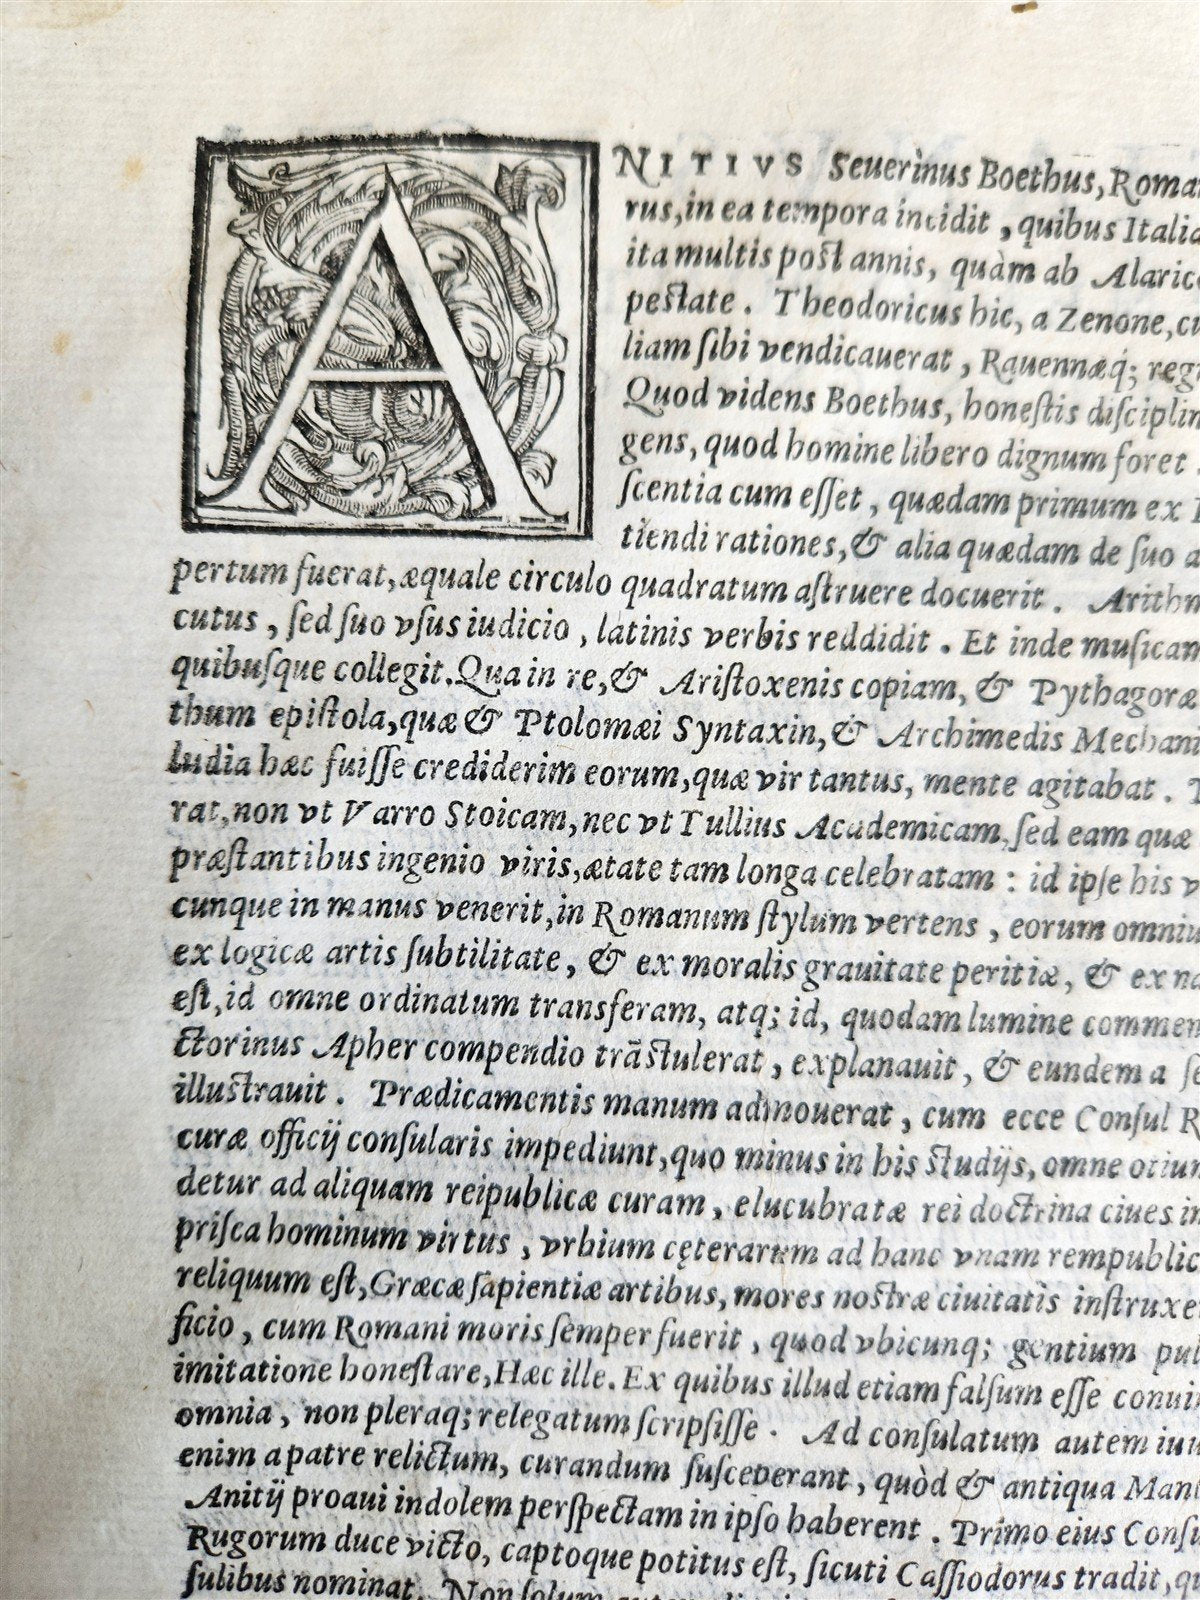 ANITIVS Seuerinus Boethus, Roma
rus, in ea tempora incidit, quibus Italia
ita multis post annis, quàm ab Alaric
pestate. Theodoricus hic, a Zenone, c
liam sibi vendicauerat, Rauennæq; reg
Quod videns Boethus, honestis disciplin
gens, quod homine libero dignum foret
scentia cum eſſet, quædam primum ex
tiendi rationes, & alia quædam de ſuo a
pertum fuerat, æquale circulo quadratum aſtruere docuerit. Arithm
cutus, ſed ſuo vſus iudicio, latinis verbis reddidit. Et inde muſicam
quibuſque collegit. Qua in re, & Ariſtoxenis copiam, & Pythagoræ
thum epiſtola, quæ & Ptolomæi Syntaxin, & Archimedis Mechani
ludia hæc fuiſſe crediderim eorum, quæ vir tantus, mente agitabat.
rat, non vt Varro Stoicam, nec vt Tullius Academicam, ſed eam quæ
præſtantibus ingenio viris, ætate tam longa celebratam : id ipſe his v
cunque in manus venerit, in Romanum ſtylum vertens, eorum omniu
ex logicæ artis ſubtilitate, & ex moralis grauitate peritiæ, & ex na
eſt, id omne ordinatum transferam, atq; id, quodam lumine commen
ctorinus Apher compendio trãſtulerat, explanauit, & eundem a ſe
illuſtrauit. Prædicamentis manum admouerat, cum ecce Conſul R
curæ officij conſularis impediunt, quo minus in his ſtudijs, omne otium
detur ad aliquam reipublicæ curam, elucubratæ rei doctrina ciues in
priſca hominum virtus, vrbium cęterarum ad hanc vnam rempublic
reliquum eſt, Græcæ ſapientiæ artibus, mores noſtræ ciuitatis inſtruxe
ficio, cum Romani moris ſemper fuerit, quod vbicunq; gentium pul
imitatione honeſtare, Hæc ille. Ex quibus illud etiam falſum eſſe conui
omnia, non pleraq; relegatum ſcripſiſſe. Ad conſulatum autem iuu
enim a patre relictum, curandum ſuſceperant, quòd & antiqua Man
Anitij proaui indolem perſpectam in ipſo haberent. Primo eius Conſu
Rugorum duce victo, captoque potitus eſt, ſicuti Caſſiodorus tradit, qu
ſulibus nominat. Non ſolum